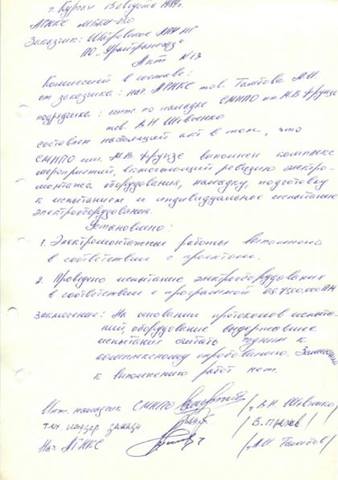 г. Курган 15 августа 1989г.
АГНКС МБКИ-250
Заказчик: Шатровское ЛПУ МГ
ПО
Акт № 13
Комиссией в составе:
от заказчика: нач АГНКС тов. Талтова А.И
подрядчика: инж по наладке СМНПО им М.В. Фрунзе
тов В.Н Шевченко
составлен настоящий акт в том, что
СМНПО им. М.В. Фрунзе выполнен комплекс
мероприятий, включающий ревизию электро-
монтажа оборудования, наладку, подготовку
к испытаниям и индивидуальное испытание
электрооборудования.
Установлено:
1. Электромонтажные работы выполнены
в соответствии с проектом.
2. Проведено испытание электрооборудования
в соответствии с программой
Заключение: На основании протоколов испыта-
ний, оборудование выдержавшее
испытания считать годным к
комплексному опробованию. Замечаний
к выполнению работ нет.
Инж. наладчик СМНПО /В.Н Шевченко/
Нач АГНКС /А.И